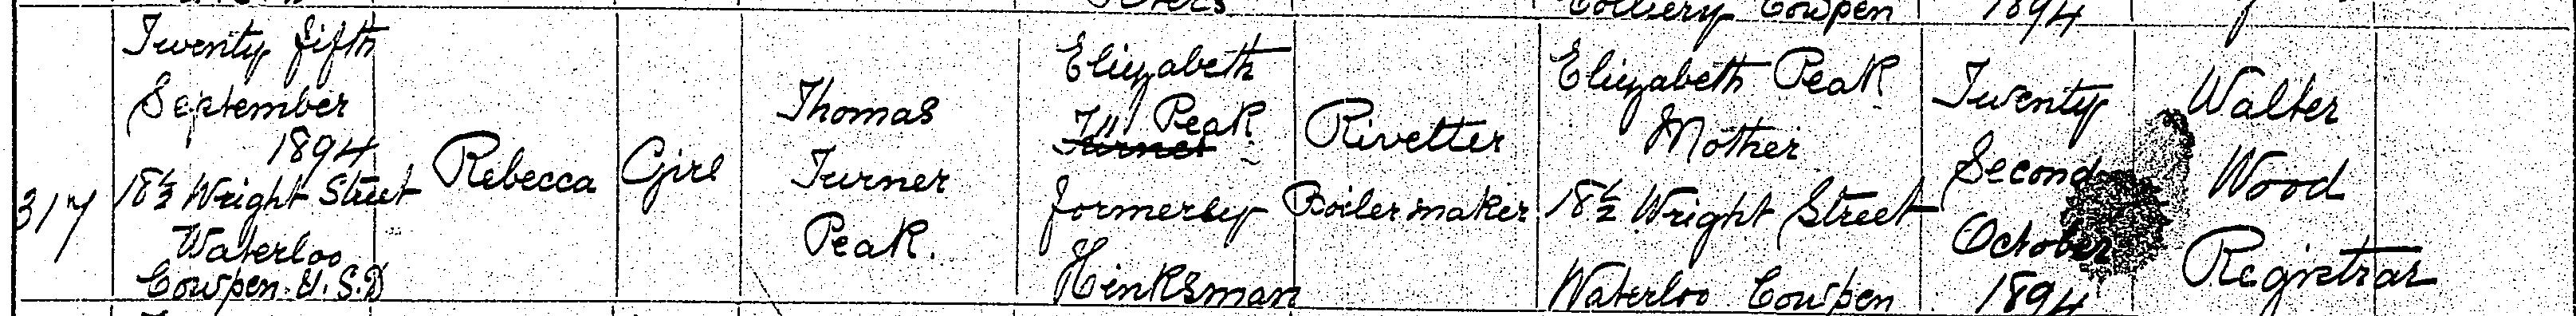 Colliery Cowpen
1894
317
Twenty fifth
September
1894
18½ Wright Street
Waterloo
Cowpen. U.S.D
Rebecca
Girl
Thomas
Turner
Peak.
Elizabeth
Peak
Turner
formerly
Hinksman
Rivetter
Boilermaker
Elizabeth Peak
Mother
18½ Wright Street
Waterloo Cowpen
Twenty
Second
October
1894
Walter
Wood
Registrar